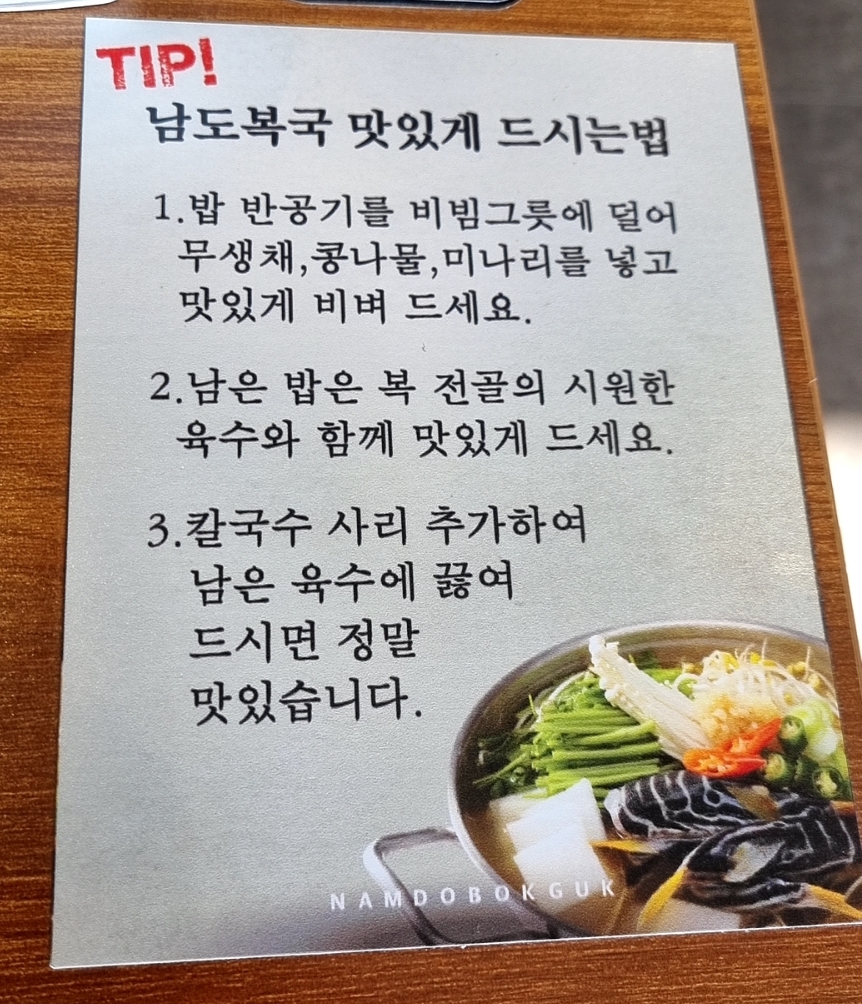 TIP!
남도복국 맛있게 드시는법
1.밥 반공기를 비빔그릇에 덜어
무생채,콩나물,미나리를 넣고
맛있게 비벼 드세요.
2.남은 밥은 복 전골의 시원한
육수와 함께 맛있게 드세요.
3.칼국수 사리 추가하여
남은 육수에 끓여
드시면 정말
맛있습니다.
NAMDOBOKGUK